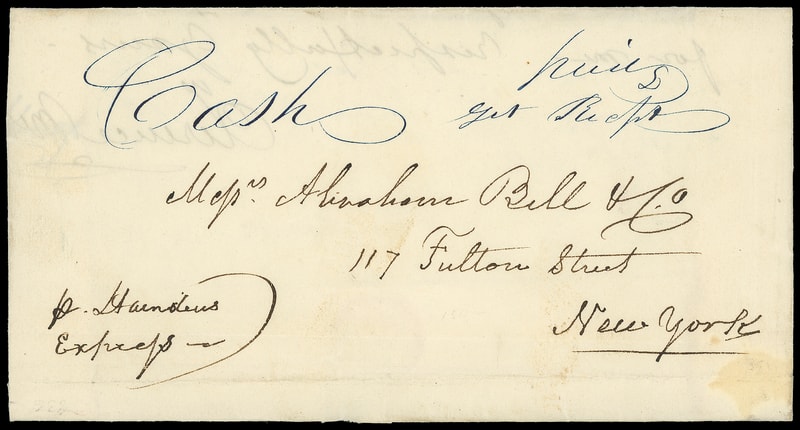 Cash paid
get Recpt
Messrs. Abraham Bell & Co
117 Fulton Street
New York
p. Harndens
Express